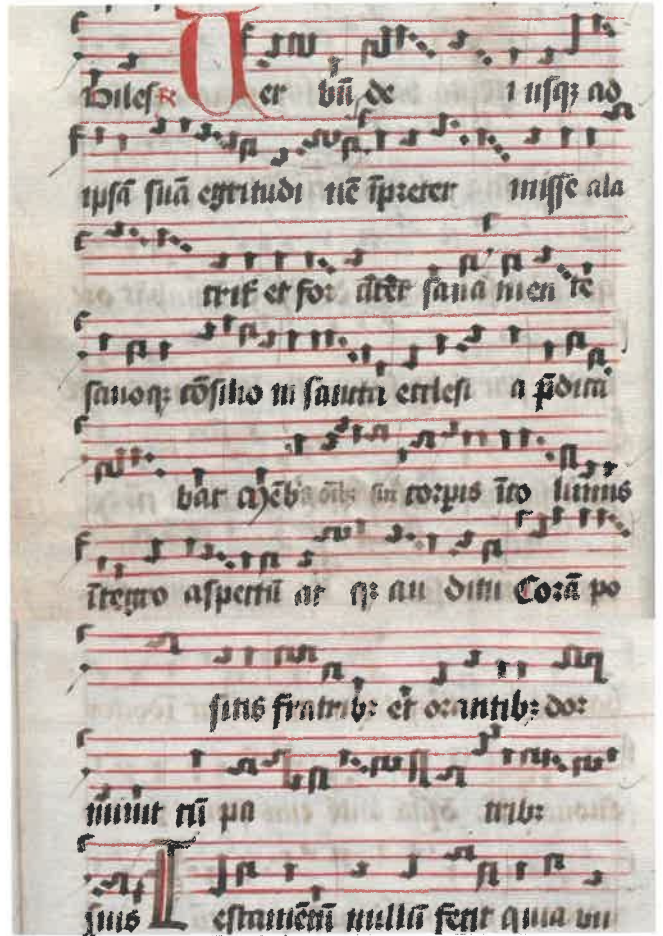 biles R Uer bū de i usq; ad
ipsā suā egritudi nē īpreter misse ala
crit̄ et for it̄er sana men te
sanoq; cōsilio in sancta ecclesi a p̄dica
bat Mēb corpis īco lumis
ītegro aspectu at q; au ditu Corā po
sitis fratrib; et orantib; dor
miuit cū pa trib;
suis Testamētū nullū fecit quia un